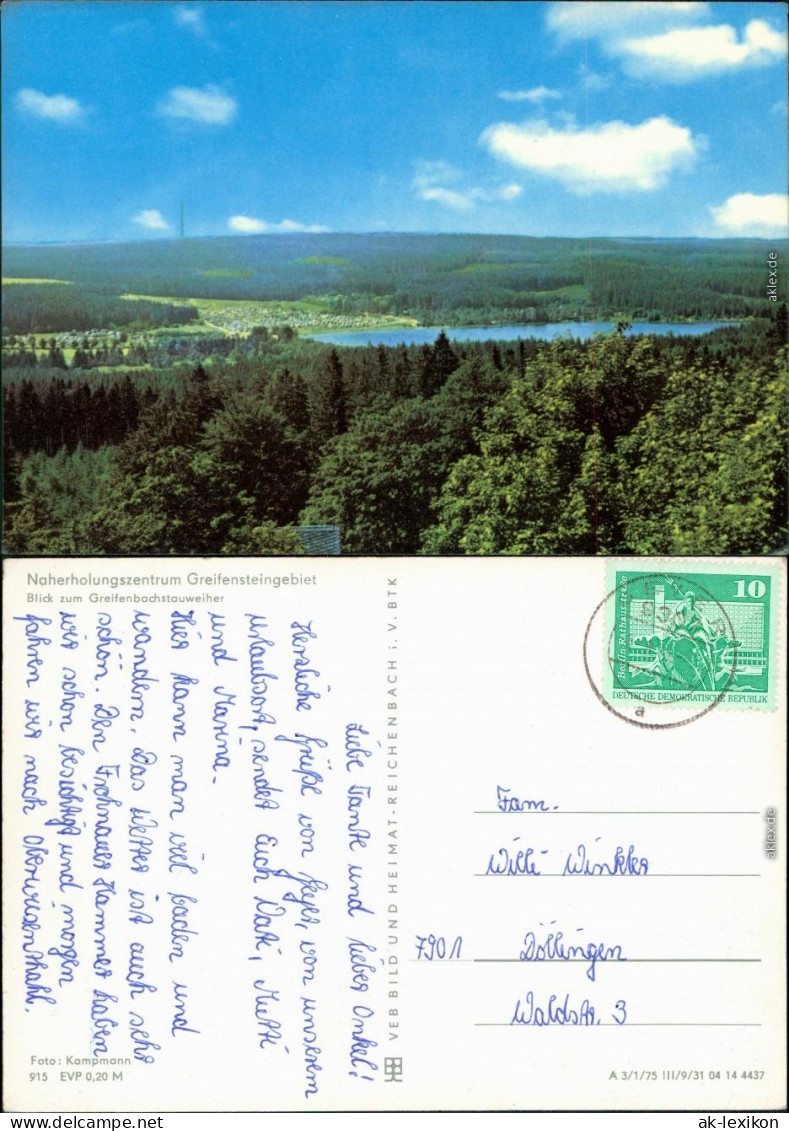 aklex.de
Naherholungszentrum Greifensteingebiet
Blick zum Greifenbachstauweiher
Liebe Tante und lieber Onkel!
Herzliche Grüße von Geyer, von unserem
Urlaubsort, sendet Euch Vati, Mutti
und Marina.
Hier kann man viel baden und
wandern. Das Wetter ist auch sehr
schön. Den Frohnauer Hammer haben
wir schon besichtigt und morgen
fahren wir nach Oberwiesenthahl.
Foto: Kampmann
915 EVP 0,20 M
VEB BILD UND HEIMAT-REICHENBACH i. V. BTK
10
Berlin-Rathausstraße
DEUTSCHE DEMOKRATISCHE REPUBLIK
a
Fam.
Willi Winkler
7901 Döllingen
Waldstr. 3
aklex.de
A 3/1/75 III/9/31 04 14 4437
ak-lexikon